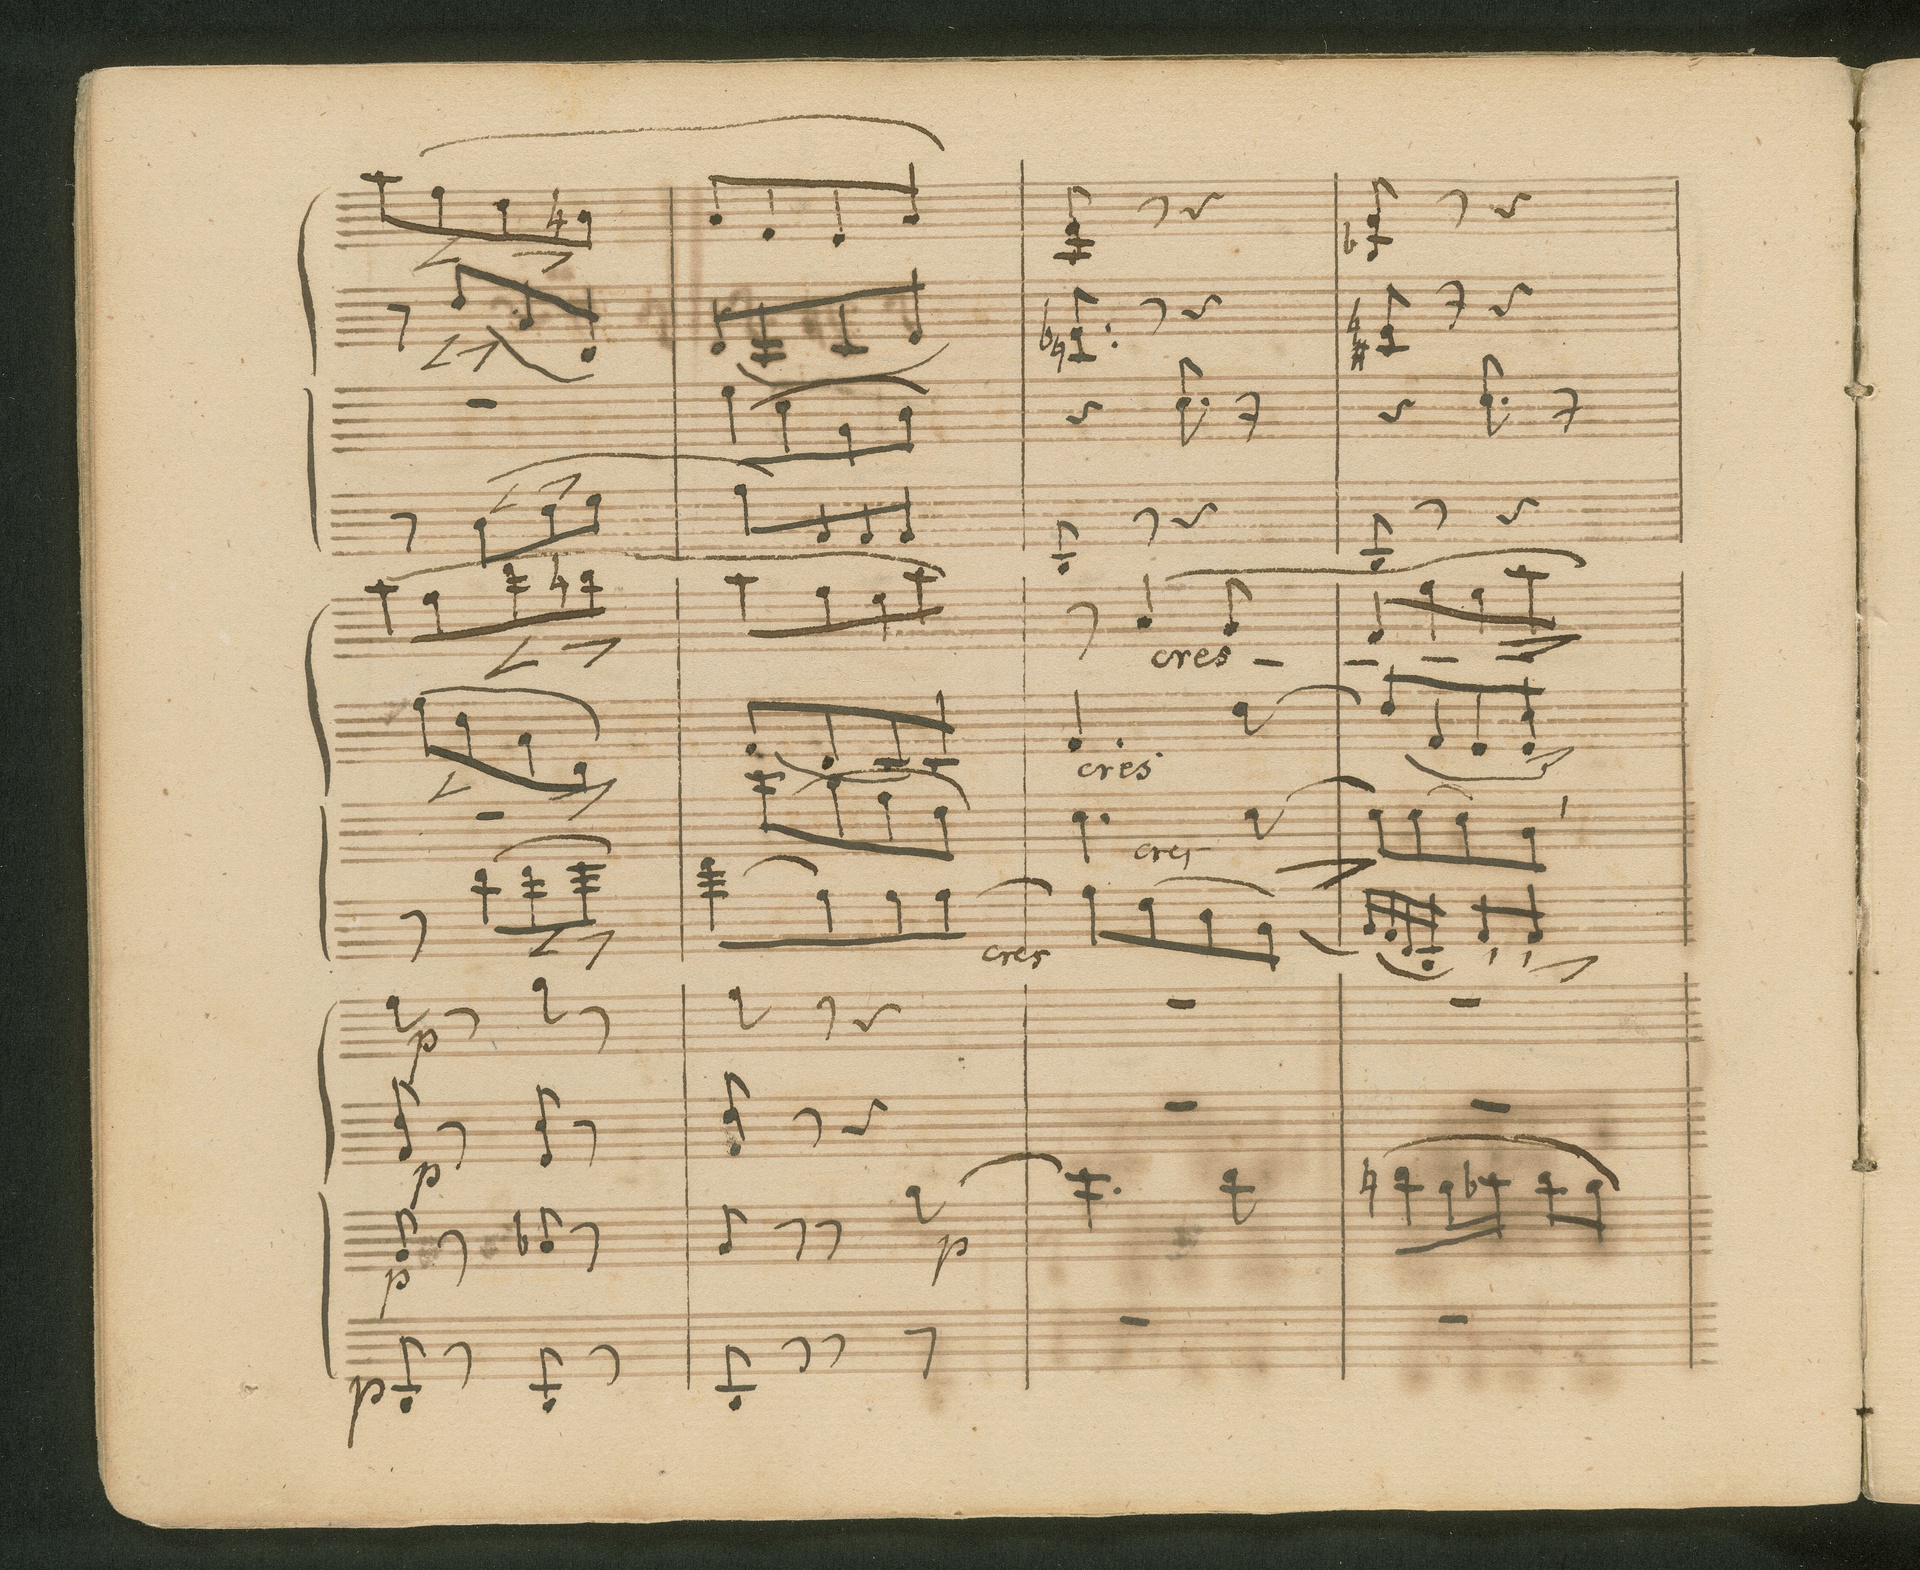 cres
cres
cres
cres
p
p
p
p
p